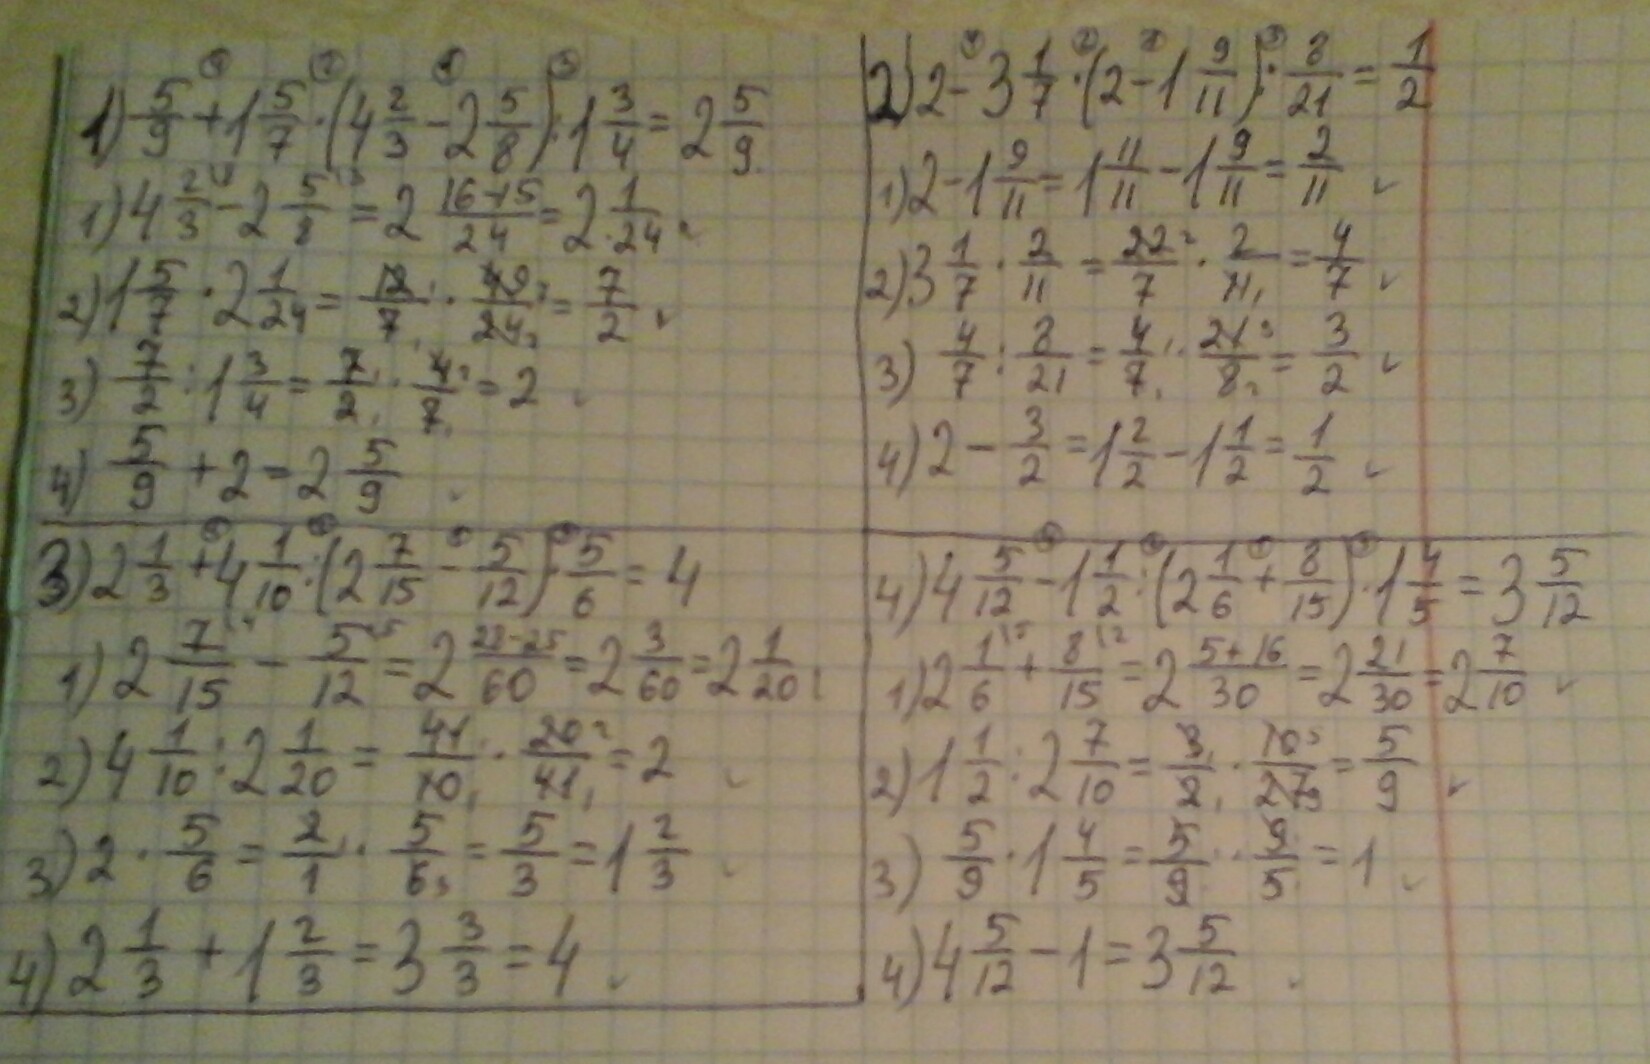 1) 5/9 + 1 5/7 · (4 2/3 - 2 5/8) : 1 3/4 = 2 5/9
1) 4 2/3 - 2 5/8 = 2 (16-15)/24 = 2 1/24
2) 1 5/7 · 2 1/24 = 12/7 · 49/24 = 7/2
3) 7/2 : 1 3/4 = 7/2 · 4/7 = 2
4) 5/9 + 2 = 2 5/9
2) 2 - 3 1/7 · (2 - 1 9/11) : 8/21 = 1/2
1) 2 - 1 9/11 = 1 11/11 - 1 9/11 = 2/11
2) 3 1/7 · 2/11 = 22/7 · 2/11 = 4/7
3) 4/7 : 8/21 = 4/7 · 21/8 = 3/2
4) 2 - 3/2 = 1 2/2 - 1 1/2 = 1/2
3) 2 1/3 + 4 1/10 : (2 7/15 - 5/12) · 5/6 = 4
1) 2 7/15 - 5/12 = 2 (28-25)/60 = 2 3/60 = 2 1/20
2) 4 1/10 : 2 1/20 = 41/10 · 20/41 = 2
3) 2 · 5/6 = 2/1 · 5/6 = 5/3 = 1 2/3
4) 2 1/3 + 1 2/3 = 3 3/3 = 4
4) 4 5/12 - 1 1/2 : (2 1/6 + 8/15) · 1 4/5 = 3 5/12
1) 2 1/6 + 8/15 = 2 (5+16)/30 = 2 21/30 = 2 7/10
2) 1 1/2 : 2 7/10 = 3/2 · 10/27 = 5/9
3) 5/9 · 1 4/5 = 5/9 · 9/5 = 1
4) 4 5/12 - 1 = 3 5/12